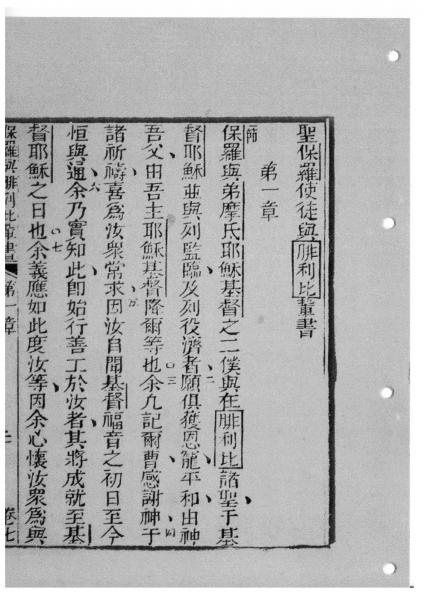 聖保羅使徒與腓利比輩書
第一章
保羅與弟摩氏耶穌基督之二僕與在腓利比諸聖于基
督耶穌並與列監臨及列役濟者願俱獲恩寵平和由神
吾父由吾主耶穌基督降爾等也余凢記爾曹感謝神于
諸祈禱喜爲汝衆常求因汝自聞基督福音之初日至今
恒與通余乃實知此即始行善工於汝者其將成就至基
督耶穌之日也余義應如此度汝等因余心懷汝衆爲與
保羅與腓利比輩書 第一章 卷七